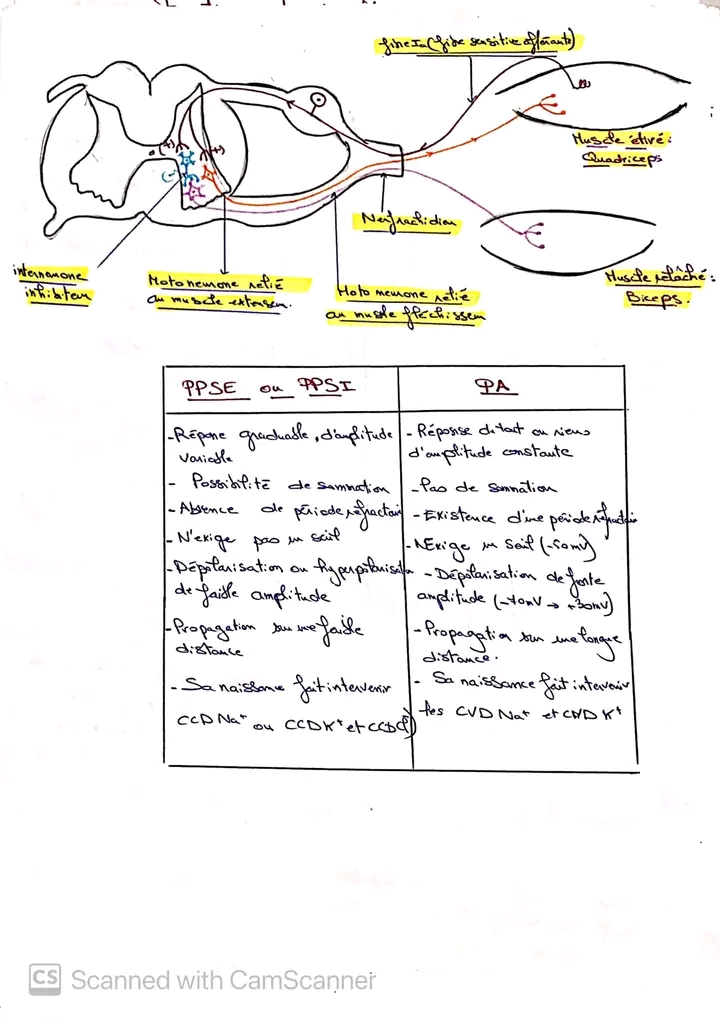 fibre Ia (fibre sensitive afférante)
Muscle étiré :
Quadriceps
(+)
(+)
(-)
Nerf rachidien
interneurone
inhibiteur
Motoneurone relié
au muscle extenseur.
Moto neurone relié
au muscle fléchisseur
Muscle relâché :
Biceps.
PPSE ou PPSI
PA
-Répone graduable, d'amplitude
variable
- Possibilité de sommation
-Absence de période réfractair
-N'exige pas un seuil
-Dépolarisation ou hyperpolarisation
de faible amplitude
-Propagation sur une faible
distance
-Sa naissance fait intervenir
CCD Na+ ou CCD K+ et CCD Cl-)
-Réponse du tout ou rien
d'amplitude constante
-Pas de sommation
-Existence d'une période réfractair
-NExige un seuil (-50mV)
-Dépolarisation de forte
amplitude (-70mV → +30mV)
-Propagation sur une longue
distance.
- Sa naissance fait intervenir
les CVD Na+ et CVD K+
CS Scanned with CamScanner